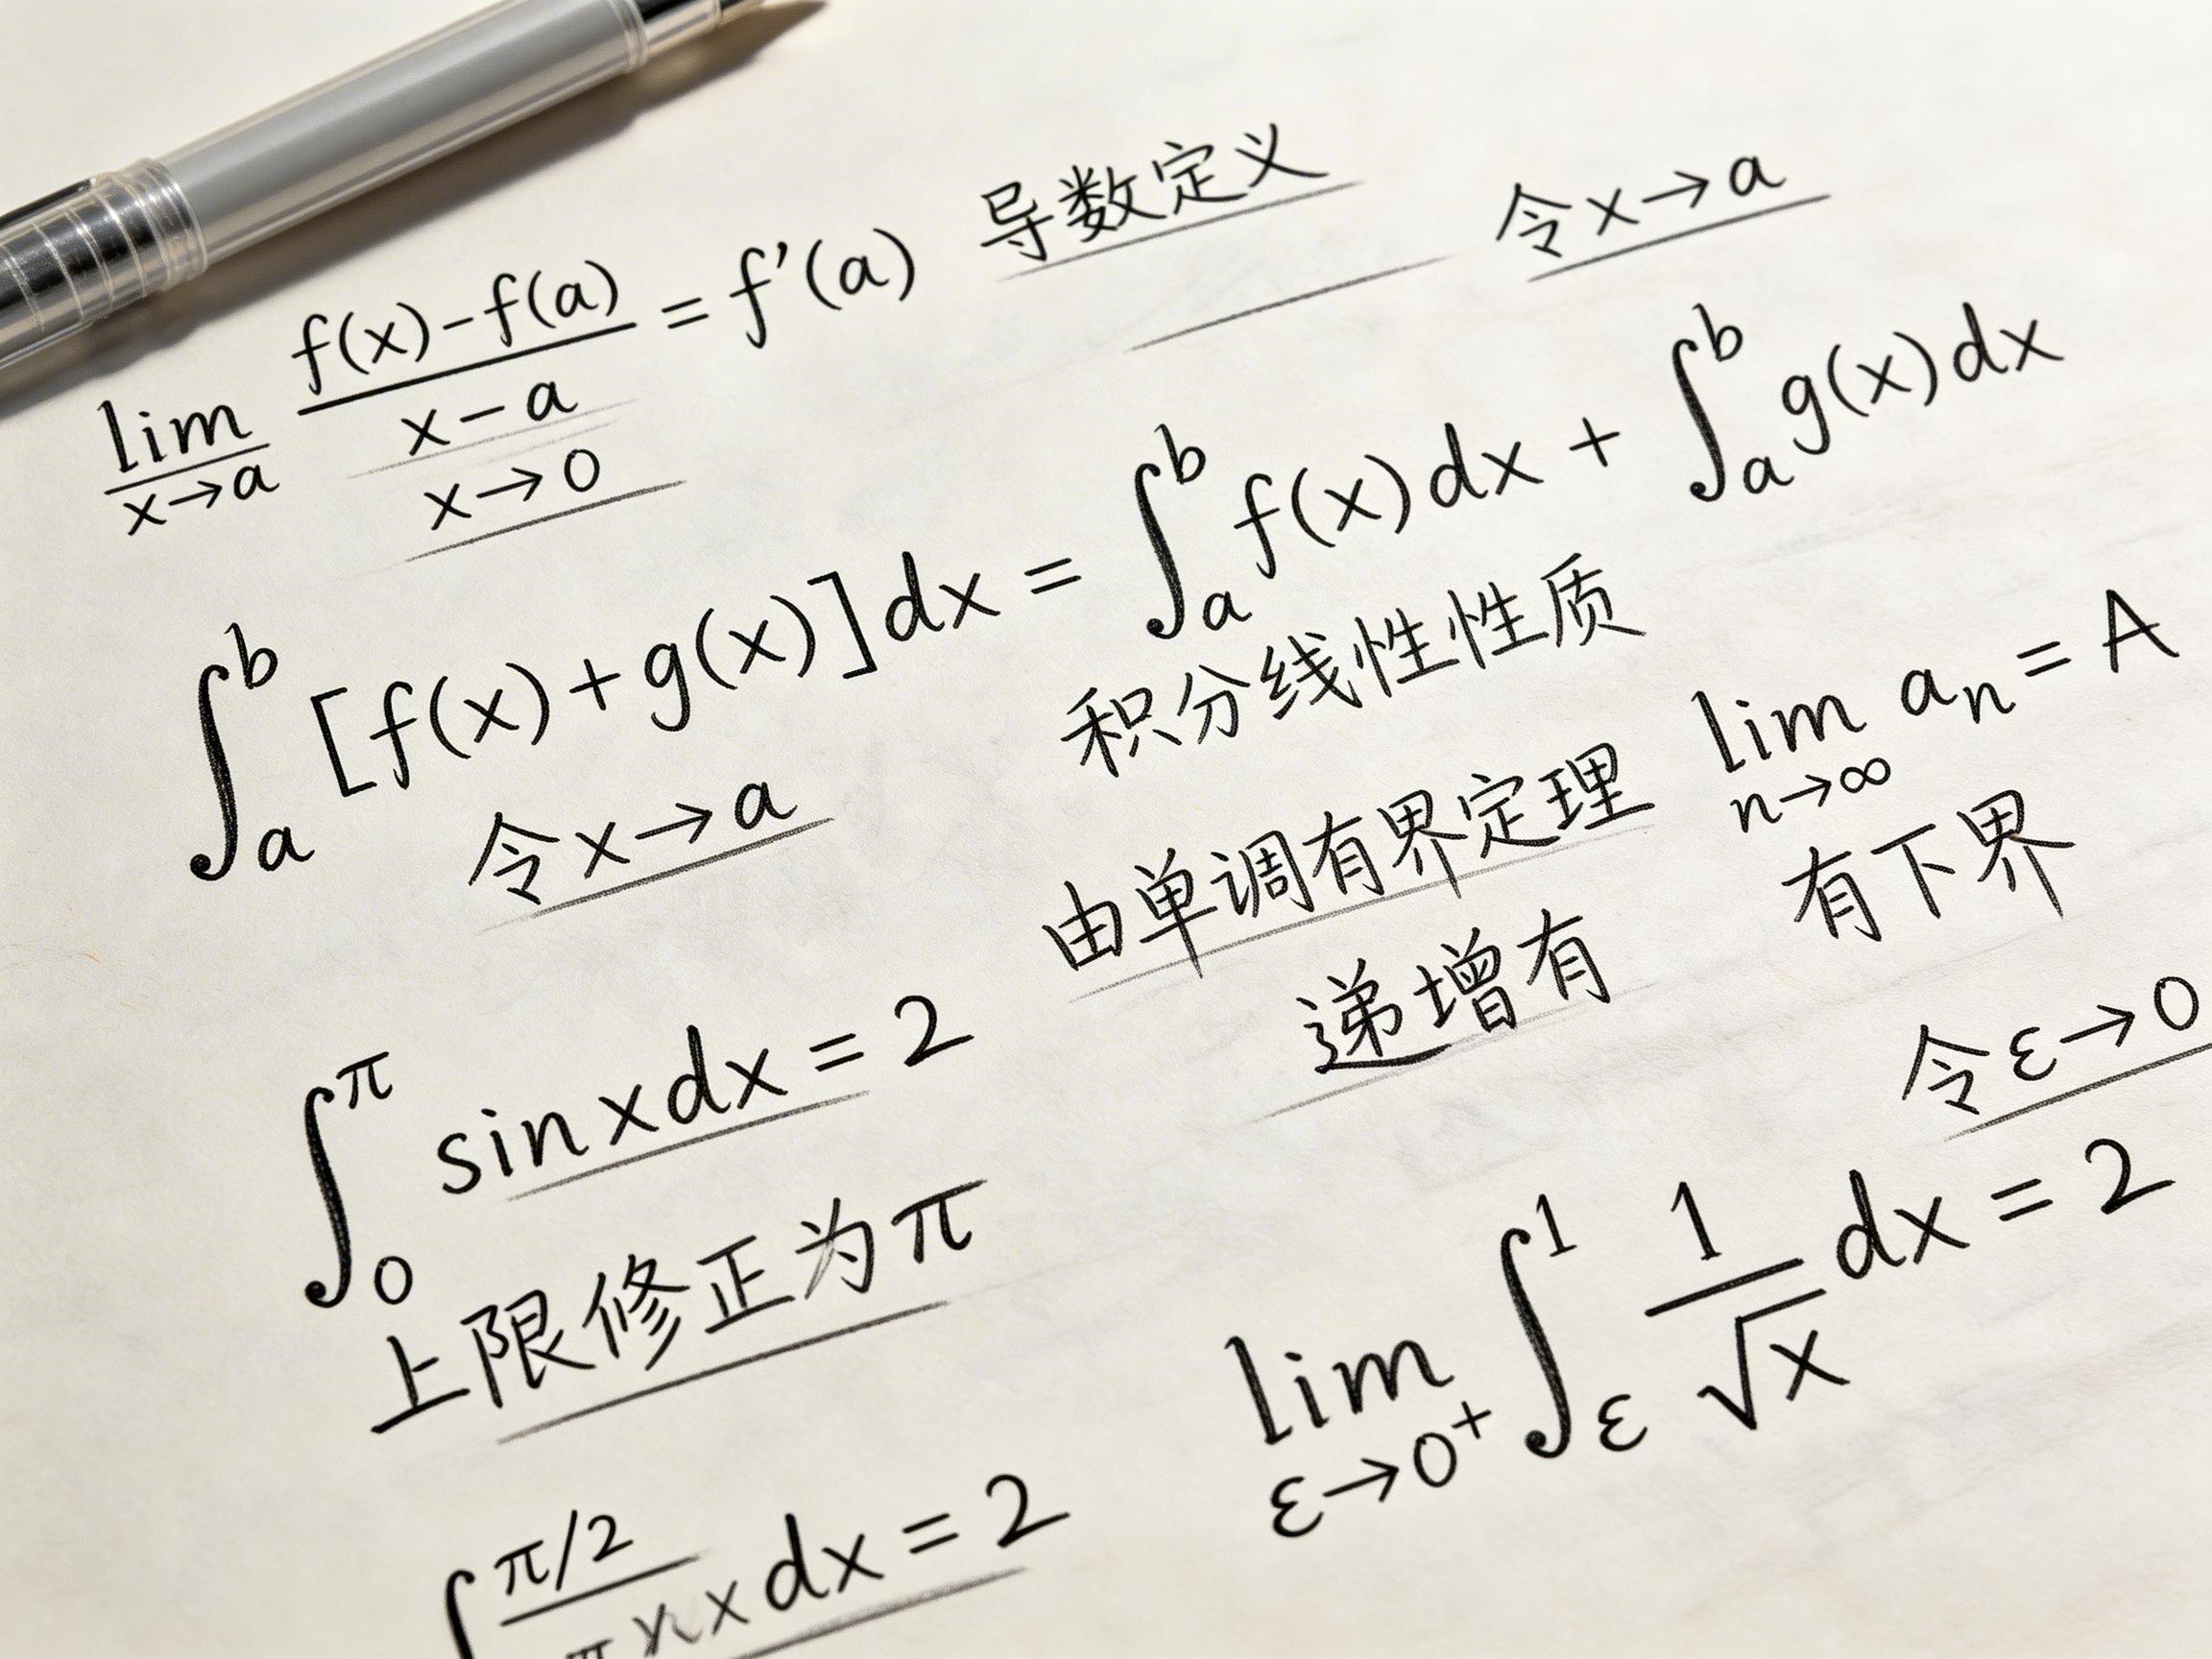 导数定义
令x→a
lim x→a (f(x)-f(a))/(x-a) = f'(a)
x→0
∫_a^b [f(x)+g(x)]dx = ∫_a^b f(x)dx + ∫_a^b g(x)dx
积分线性性质
令x→a
由单调有界定理 lim n→∞ a_n = A
递增有 有下界
令ε→0
∫_0^π sin x dx = 2
上限修正为π
lim ε→0⁺ ∫_ε^1 1/√x dx = 2
∫ π/2 x dx = 2